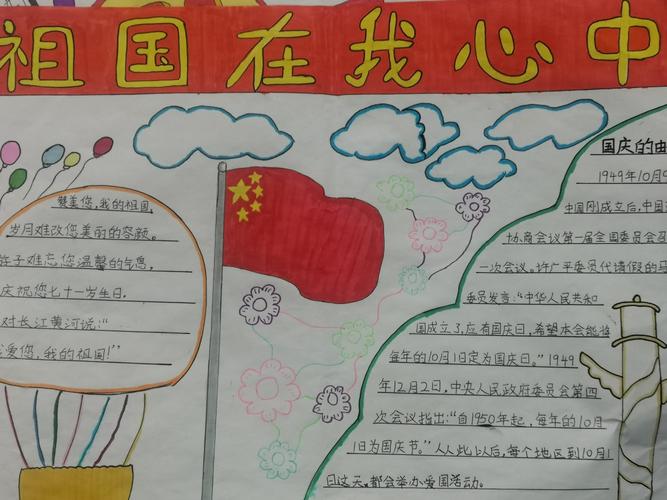 祖国在我心中
赞美您,我的祖国,
岁月难改您美丽的容颜。
子难忘您温馨的气息,
庆祝您七十一岁生日.
对长江黄河说:“
爱您,我的祖国!”
国庆的由
1949年10月9
中国刚成立后,中国
协商会议第一届全国委员会召
一次会议。许广平委员代请假的马
委员发言:“中华人民共和
国成立了,应有国庆日,希望本会能将
每年的10月1日定为国庆日。”1949
年12月2日,中央人民政府委员会第四
次会议指出:“自1950年起,每年的10月
1日为国庆节。”从此以后,每个地区到10月1
日这天,都会举办爱国活动。